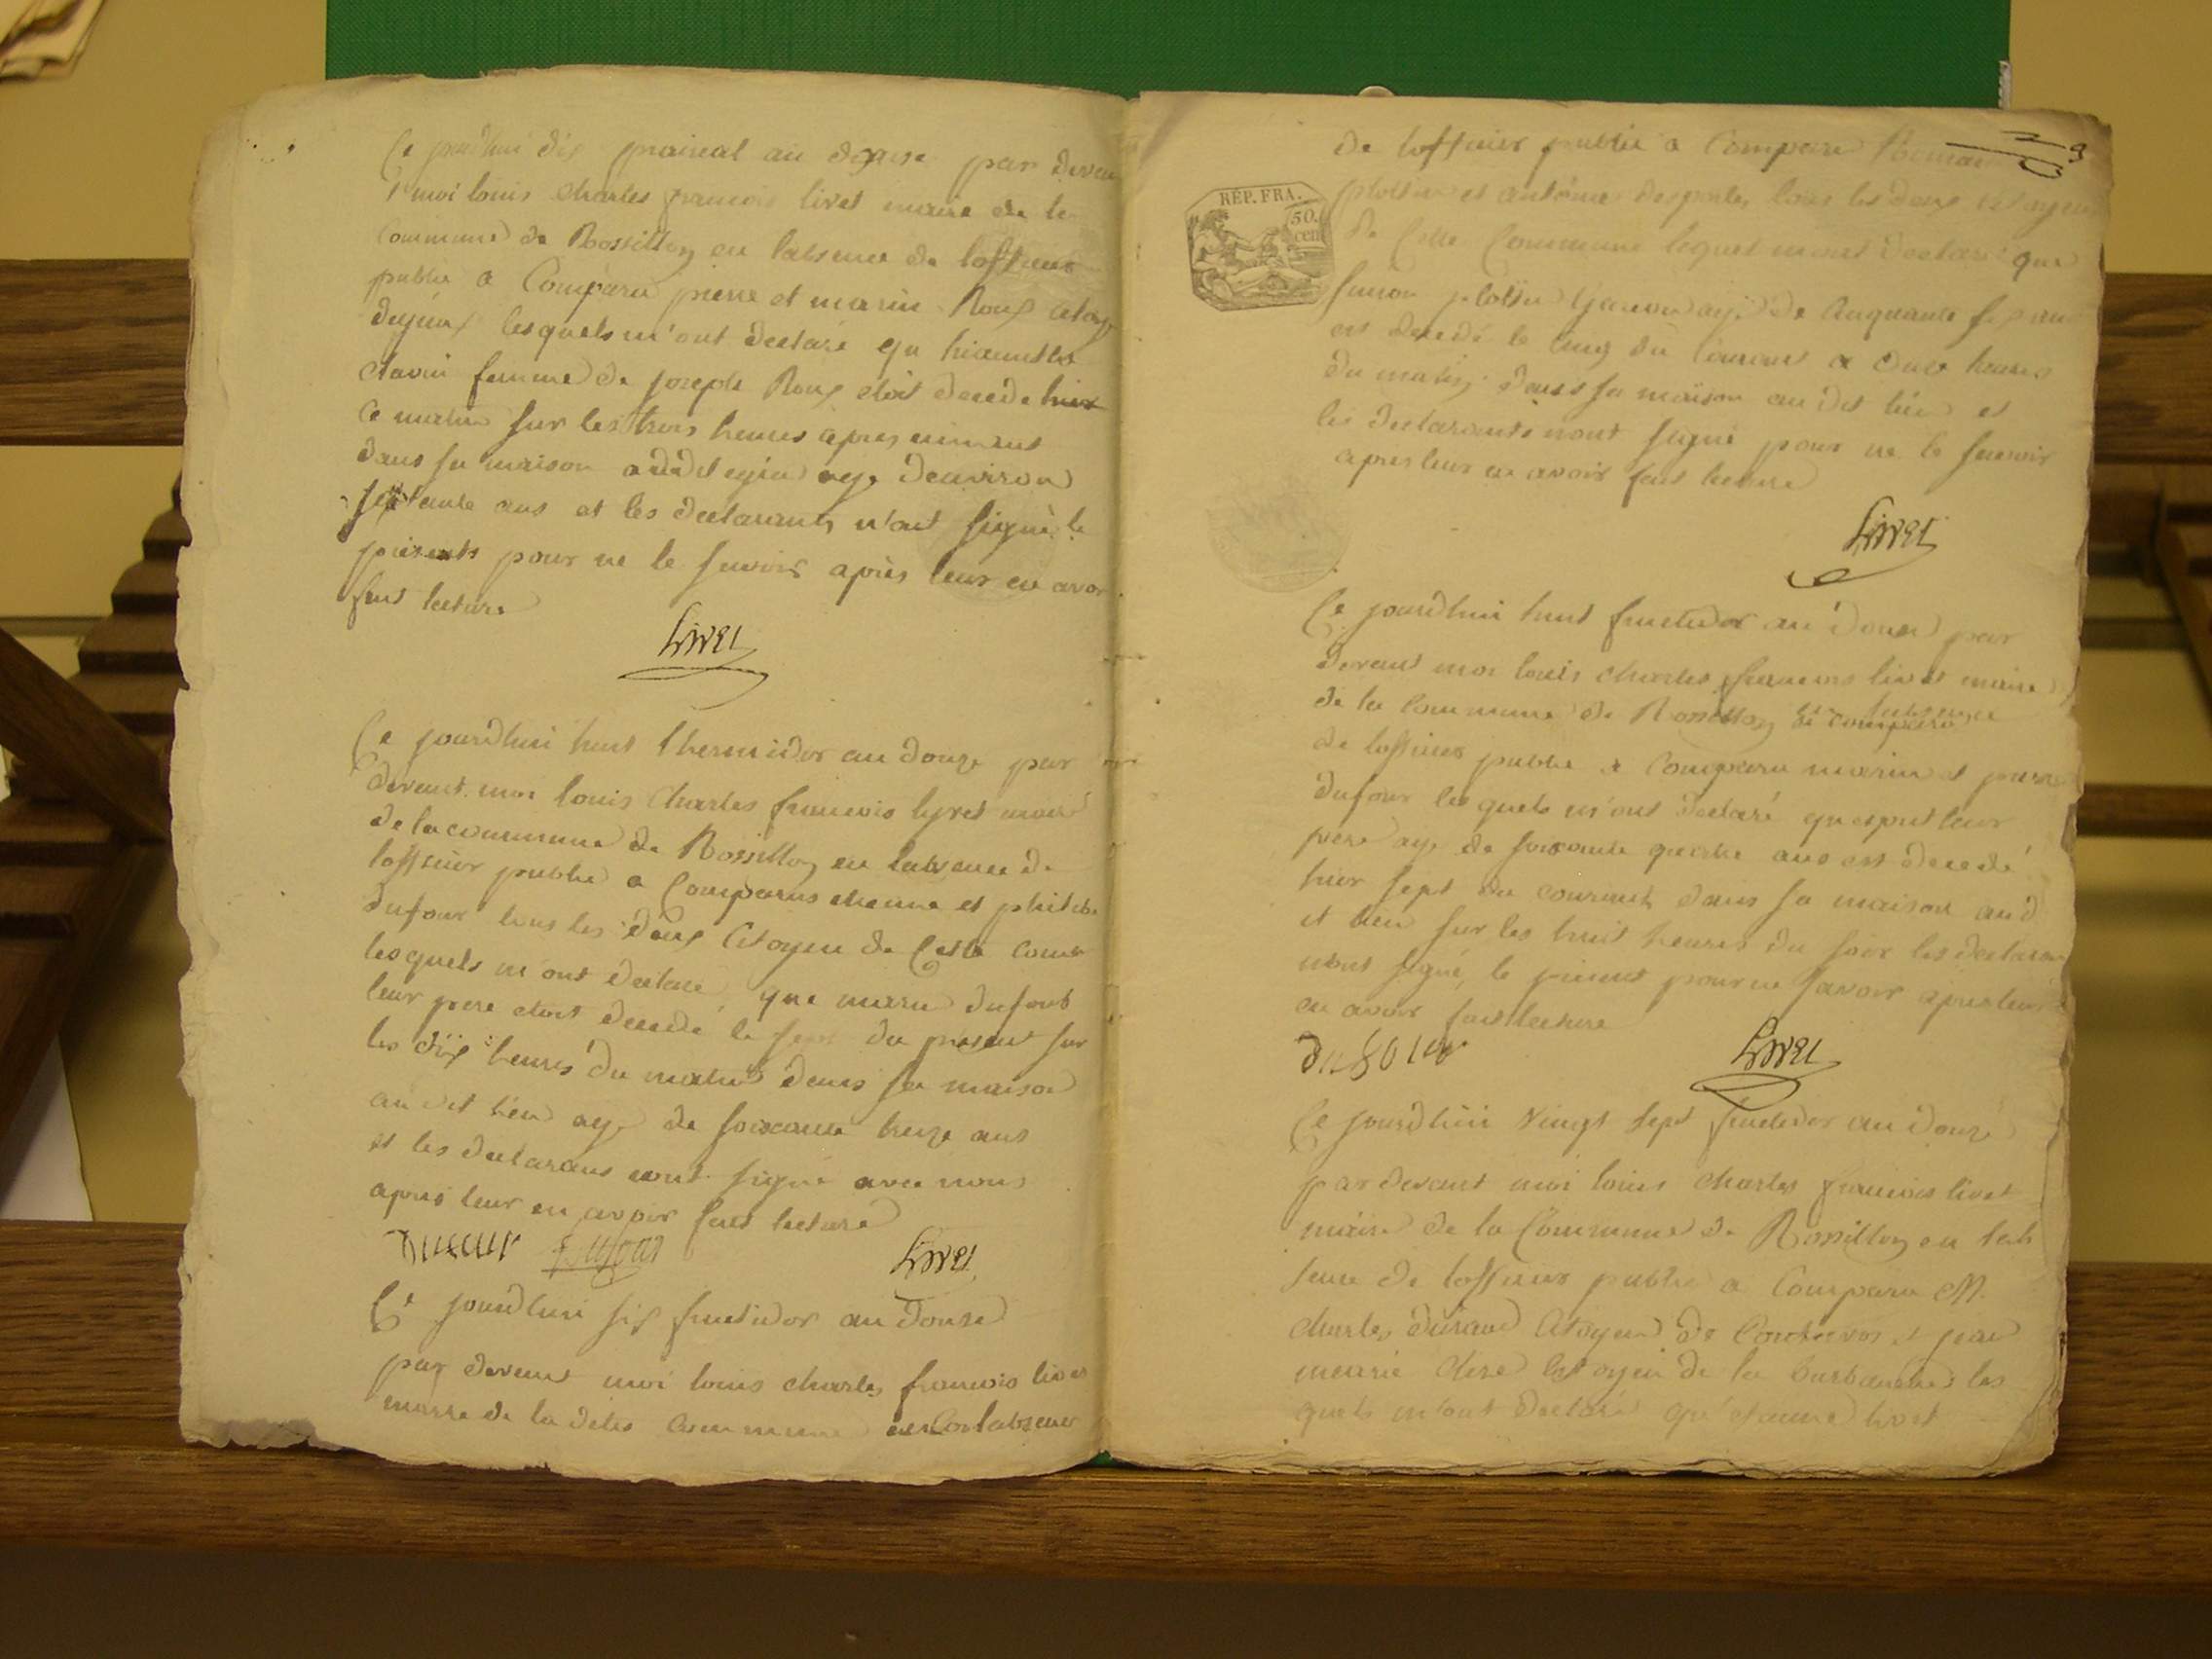 Ce jourdhui dix prairial an douze par devan
moi louis charles francois livet maire de la
commune de Rossillon en labsence de lofficier
public a Comparu pierre et marin Roux citoy
lesquels m'ont declaré qu
femme de joseph Roux etoit decede hier
Ce matin sur les trois heures apres minuit
dans sa maison audit age denviron
septante ans et les declarants n'ont signé le
présents pour ne le savoir après leur en avoir
fait lecture
Livet
Ce jourdhui huit thermidor an douze par
devant moi louis charles francois lyvet maire
de la commune de Rossillon en labsence de
lofficier public a Comparus etienne et philibe
dufour tous les deux Citoyen de Cette comm
lesquels m'ont declaré que marin dufour
leur pere etoit decedé le sept du présent sur
les dix heures du matin dans sa maison
au dit lieu age de soixante treize ans
et les declarans ont signé avec nous
apres leur en avoir fait lecture
Dufour f Dufour Livet
Ce jourdhui six fructidor an douze
par devant moi louis charles francois livet
maire de la dite Commune en labsence
de lofficier public a Comparu Romain
et antoine desportes tous les deux citoyens
RÉP. FRA.
50. cen
de Cette Commune lequel mont declaré que
agé de Cinquante six ans
est decedé le cinq du Courant a onze heures
du matin dans sa maison au dit lieu et
les declarants nont signé pour ne le savoir
apres leur en avoir fait lecture
Livet
Ce jourdhui huit fructidor an douze par
devant moi louis charles francois livet maire
de la Commune de Rossillon en labsence
de lofficier public a Comparu marin et pierre
dufour lesquels m'ont declaré leur
pere age de soixante quatre ans est decedé
hier sept du courant dans sa maison aud
et lieu sur les huit heures du soir les declaran
nont signé le présent pour ne savoir apres leur
en avoir fait lecture
dufour Livet
Ce jourdhui vingt sept fructidor an douze
par devant moi louis charles francois livet
maire de la Commune de Rossillon en lab
sence de lofficier public a Comparu M.
charles Citoyen de Contrevos et
Citoyen de la burbanche les
quels m'ont declaré livet